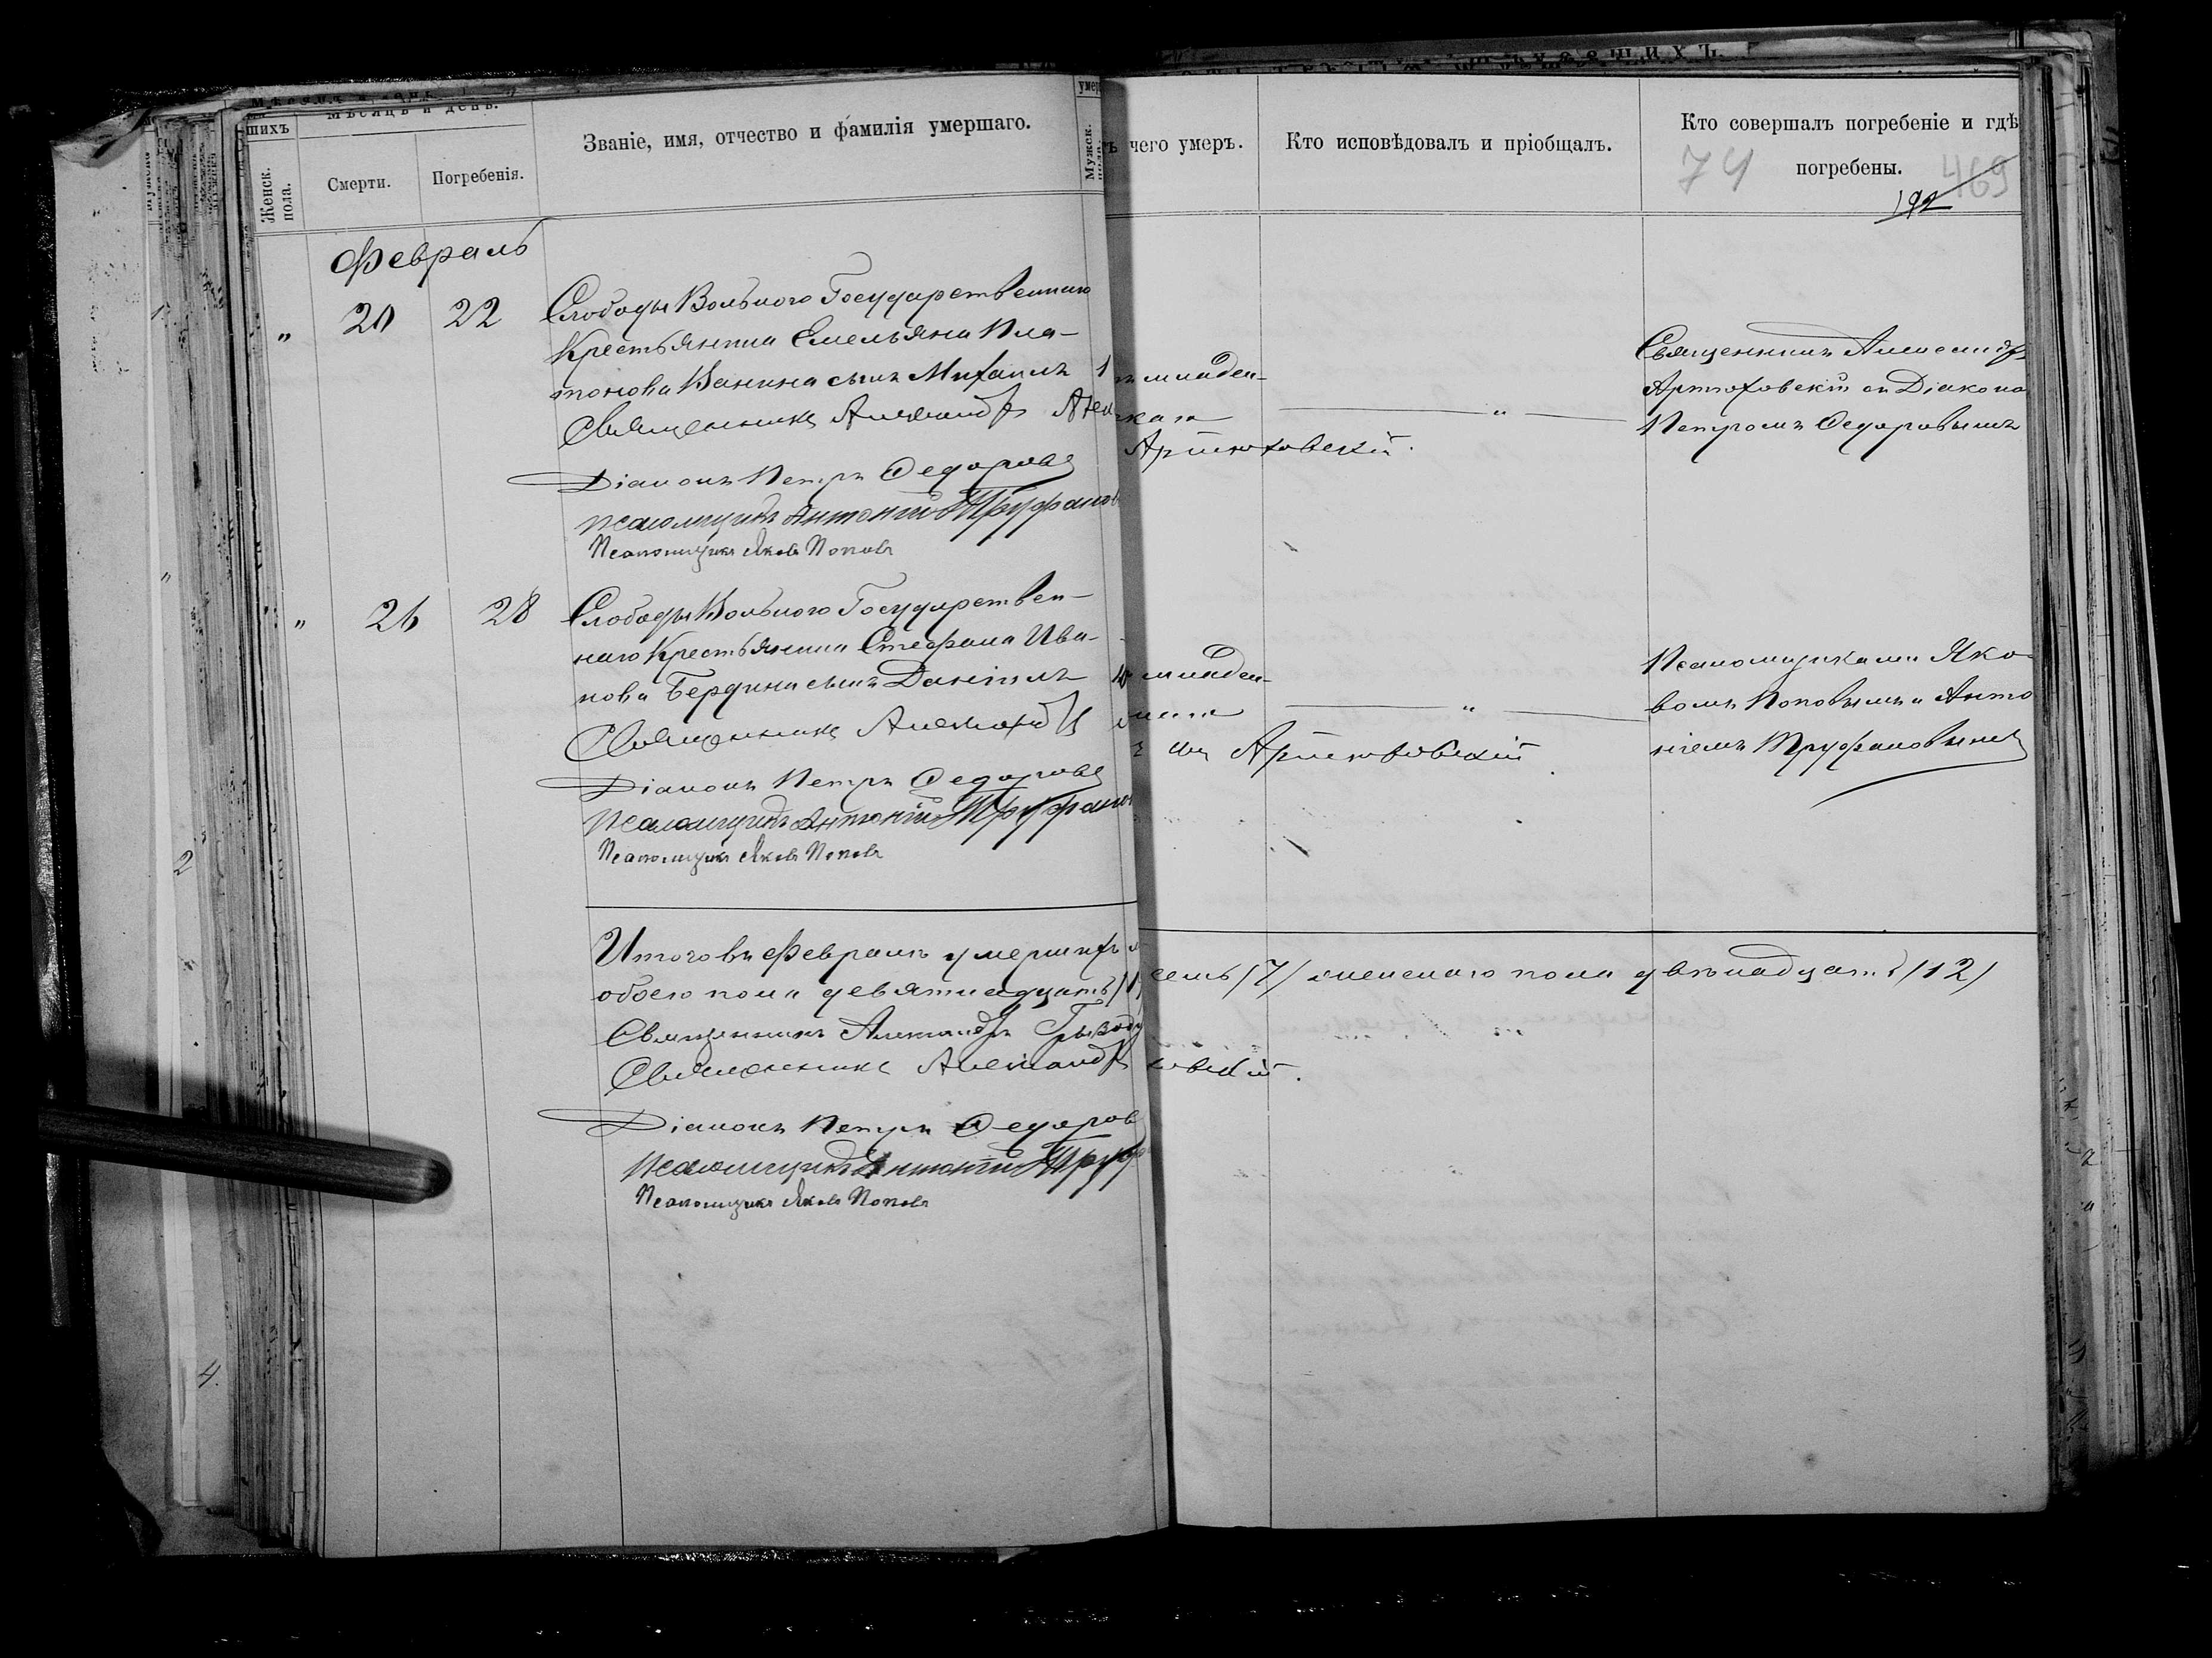 шихъ
Мѣсяцъ и день.
Женск. пола.
Смерти.
Погребенія.
Званіе, имя, отчество и фамилія умершаго.
умер
Мужск.
чего умеръ.
Кто исповѣдовалъ и пріобщалъ.
Кто совершалъ погребеніе и гдѣ
погребены.
74
469
192
Февраль
" 20 22
Слободы Вольнаго Государственнаго
Крестьянина Емельяна Пла-
тонова Ванина сынъ Михаилъ 1
Священникъ Александръ
Діаконъ Петръ Федоровъ
Псаломщикъ Антоній Труфанов
Псаломщикъ Яковъ Поповъ
младен-
"
Артюховскій.
Священникъ Александръ
Артюховскій съ Діакона
Петромъ Федоровымъ
" 26 28
Слободы Вольнаго Государствен-
наго Крестьянина Стефана Ива-
нова Бердина сынъ Даніилъ
Священникъ Александръ
Діаконъ Петръ Федоровъ
Псаломщикъ Антоній Труфанов
Псаломщикъ Яковъ Поповъ
младен-
"
Артюховскій
Псаломщиками Яко-
вомъ Поповымъ и Анто
ніемъ Труфановымъ
Итого въ Февралѣ умершихъ
семь /7/ женскаго пола двѣнадцать /12/
обоего пола девятнадцать
Священникъ Александръ
Священникъ Александръ
овскій.
Діаконъ Петръ Федоров
Псаломщикъ Антоній Труф
Псаломщикъ Яковъ Поповъ
1
"
2
4.